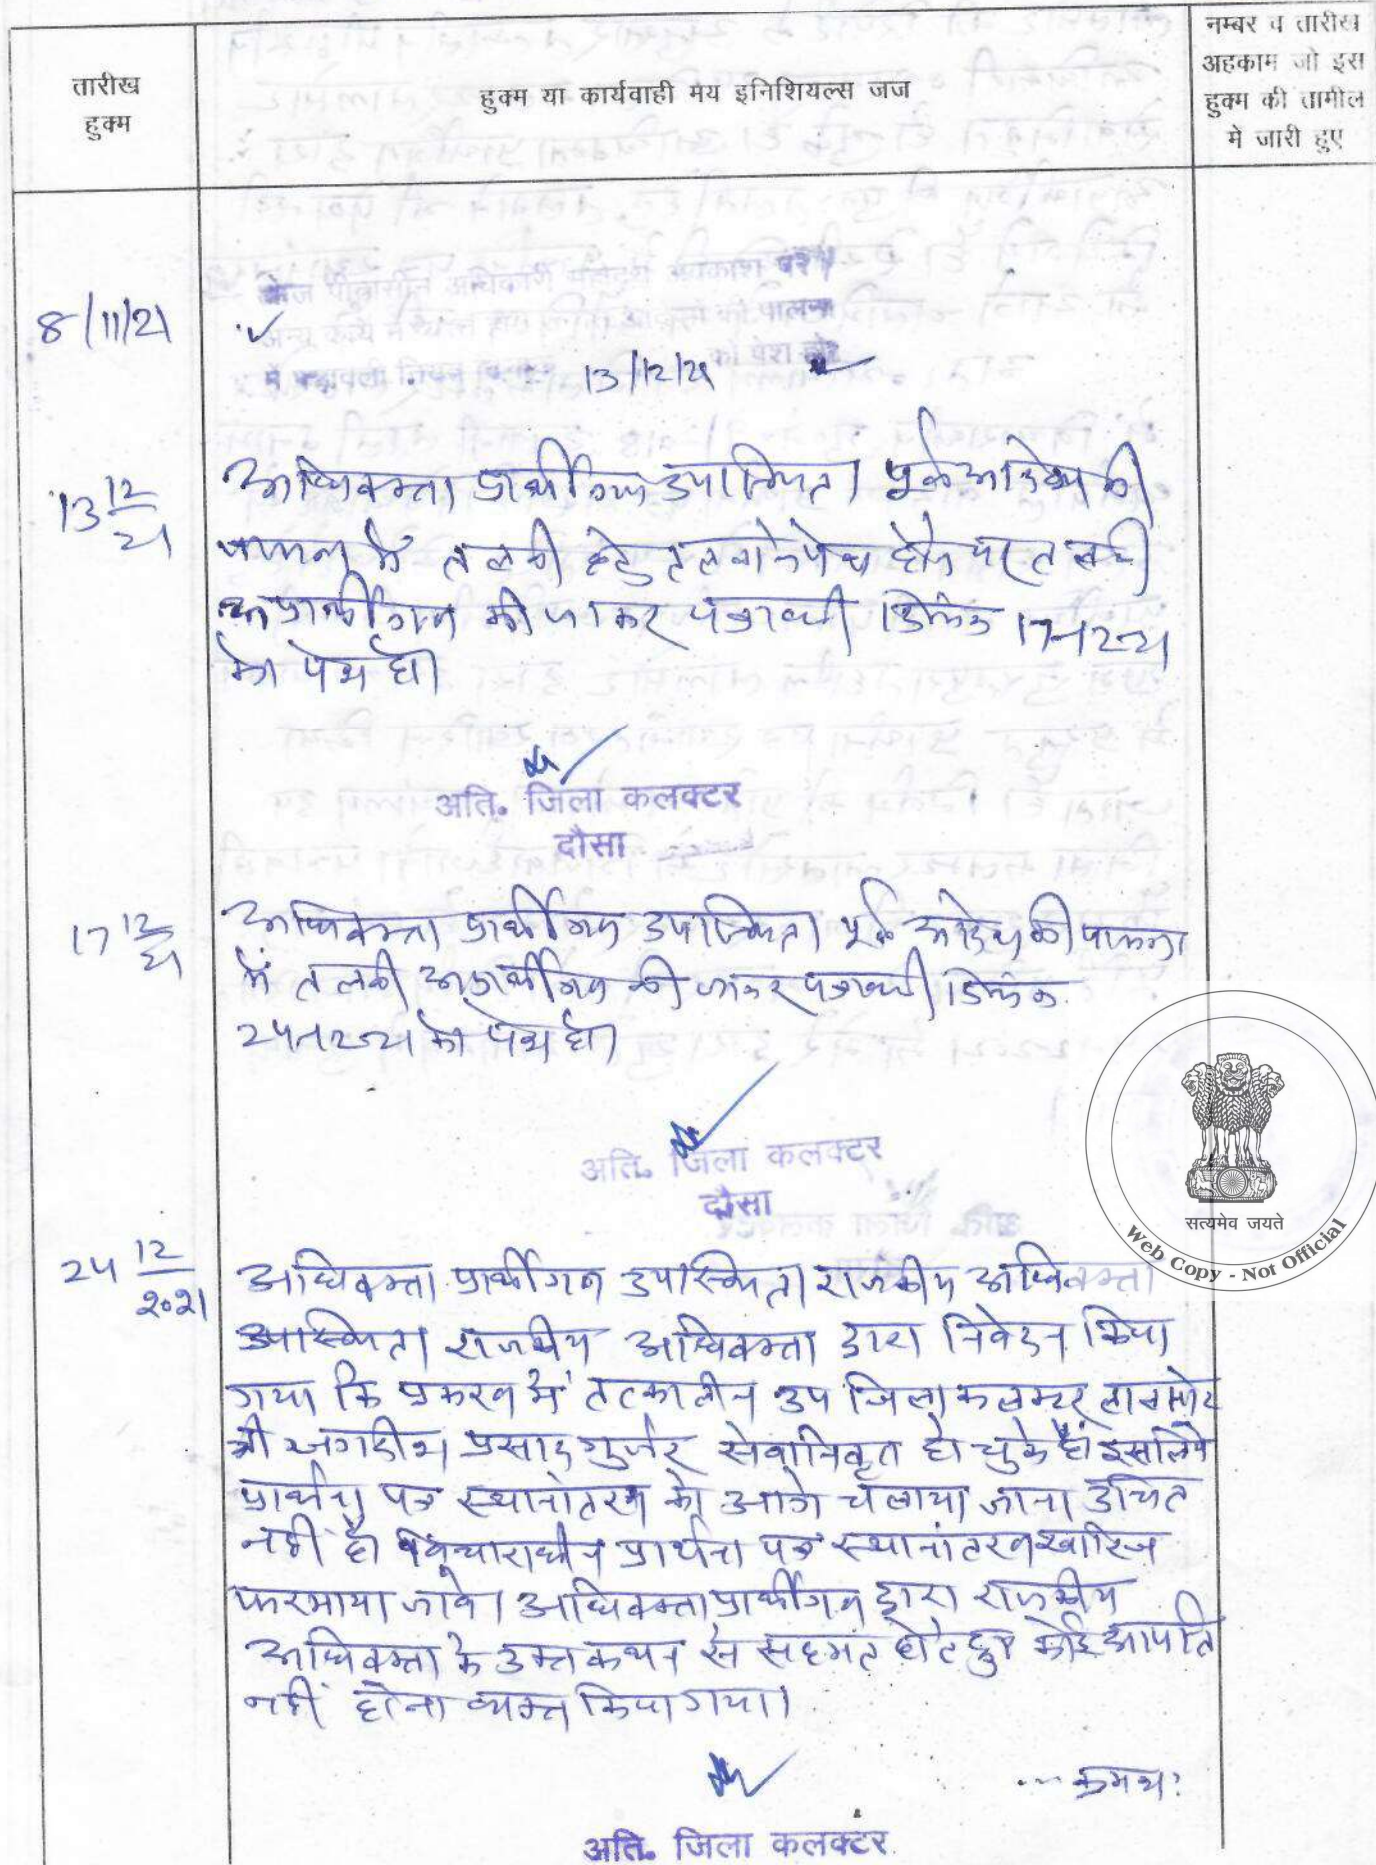 तारीख
हुक्म
हुक्म या कार्यवाही मय इनिशियल्स जज
नम्बर व तारीख
अहकाम जो इस
हुक्म की तामील
मे जारी हुए
8/11/21
पीठासीन अधिकारी अवकाश पर
अन्य कार्य में की पालना
में पत्रावली को पेश हो
13/12/21
13 12/21
अधिवक्ता प्रार्थीगण उपस्थित। पूर्व आदेश की
पालना में तलबी हेतु पेश होने पर तलबी
अप्रार्थीगण की जाकर पत्रावली दिनांक 17-12-21
को पेश हो।
अति. जिला कलक्टर
दौसा
17 12/21
अधिवक्ता प्रार्थीगण उपस्थित। पूर्व आदेश की पालना
में तलबी अप्रार्थीगण की जाकर पत्रावली दिनांक
24-12-21 को पेश हो।
अति. जिला कलक्टर
दौसा
24 12/2021
अधिवक्ता प्रार्थीगण उपस्थित। राजकीय अधिवक्ता
उपस्थित। राजकीय अधिवक्ता द्वारा निवेदन किया
गया कि प्रकरण में तत्कालीन उप जिला कलक्टर लालसोट
श्री जगदीश प्रसाद गुर्जर सेवानिवृत हो चुके हैं। इसलिये
प्रार्थना पत्र स्थानांतरण को आगे चलाया जाना उचित
नहीं है। विचाराधीन प्रार्थना पत्र स्थानांतरण खारिज
फरमाया जावे। अधिवक्ता प्रार्थीगण द्वारा राजकीय
अधिवक्ता के उक्त कथन से सहमत होते हुए कोई आपत्ति
नहीं होना व्यक्त किया गया।
... क्रमशः
अति. जिला कलक्टर
सत्यमेव जयते
Web Copy - Not Official